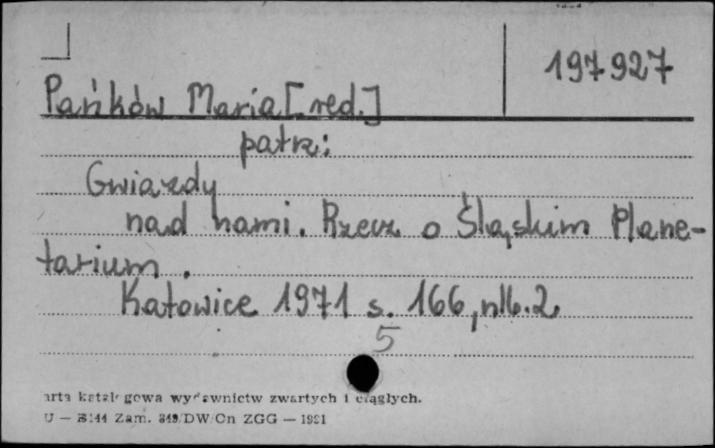 197927
Pańków Maria [red.]
patrz:
Gwiazdy
nad nami. Rzecz o Śląskim Plane-
tarium.
Katowice 1971 s. 166, nlb. 2
5
arta katalogowa wydawnictw zwartych i ciągłych.
U — Zam. DW/Cn ZGG —